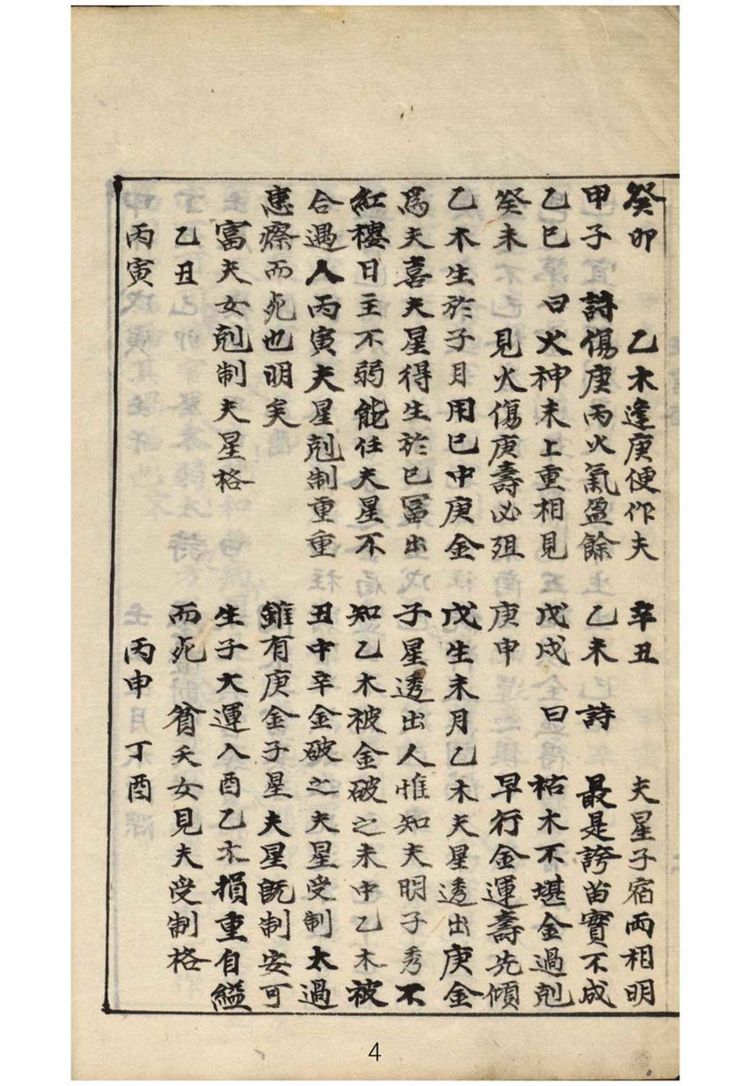 癸卯 乙木逢庚便作夫
甲子 詩傷庚丙火氣盈餘
乙巳 曰火神未上重相見
癸未 見火傷庚壽必殂
乙木生於子月用巳中庚金
爲夫喜夫星得生於巳冨出
紅樓日主不弱能任夫星不
合遇人丙寅夫星剋制重重
患瘵而死也明矣
富夭女剋制夫星格
乙丑
丙寅
辛丑 夫星子宿兩相明
乙未 詩 最是誇苗實不成
戊戌 曰 枯木不堪金過剋
庚申 早行金運壽先傾
戊生未月乙木夫星透出庚金
子星透出人惟知夫明子秀不
知乙木被金破之未中乙木被
丑中辛金破之夫星受制太過
雖有庚金子星夫星既制安可
生子大運入酉乙木損重自縊
而死 貧夭女見夫受制格
丙申 丁酉
4